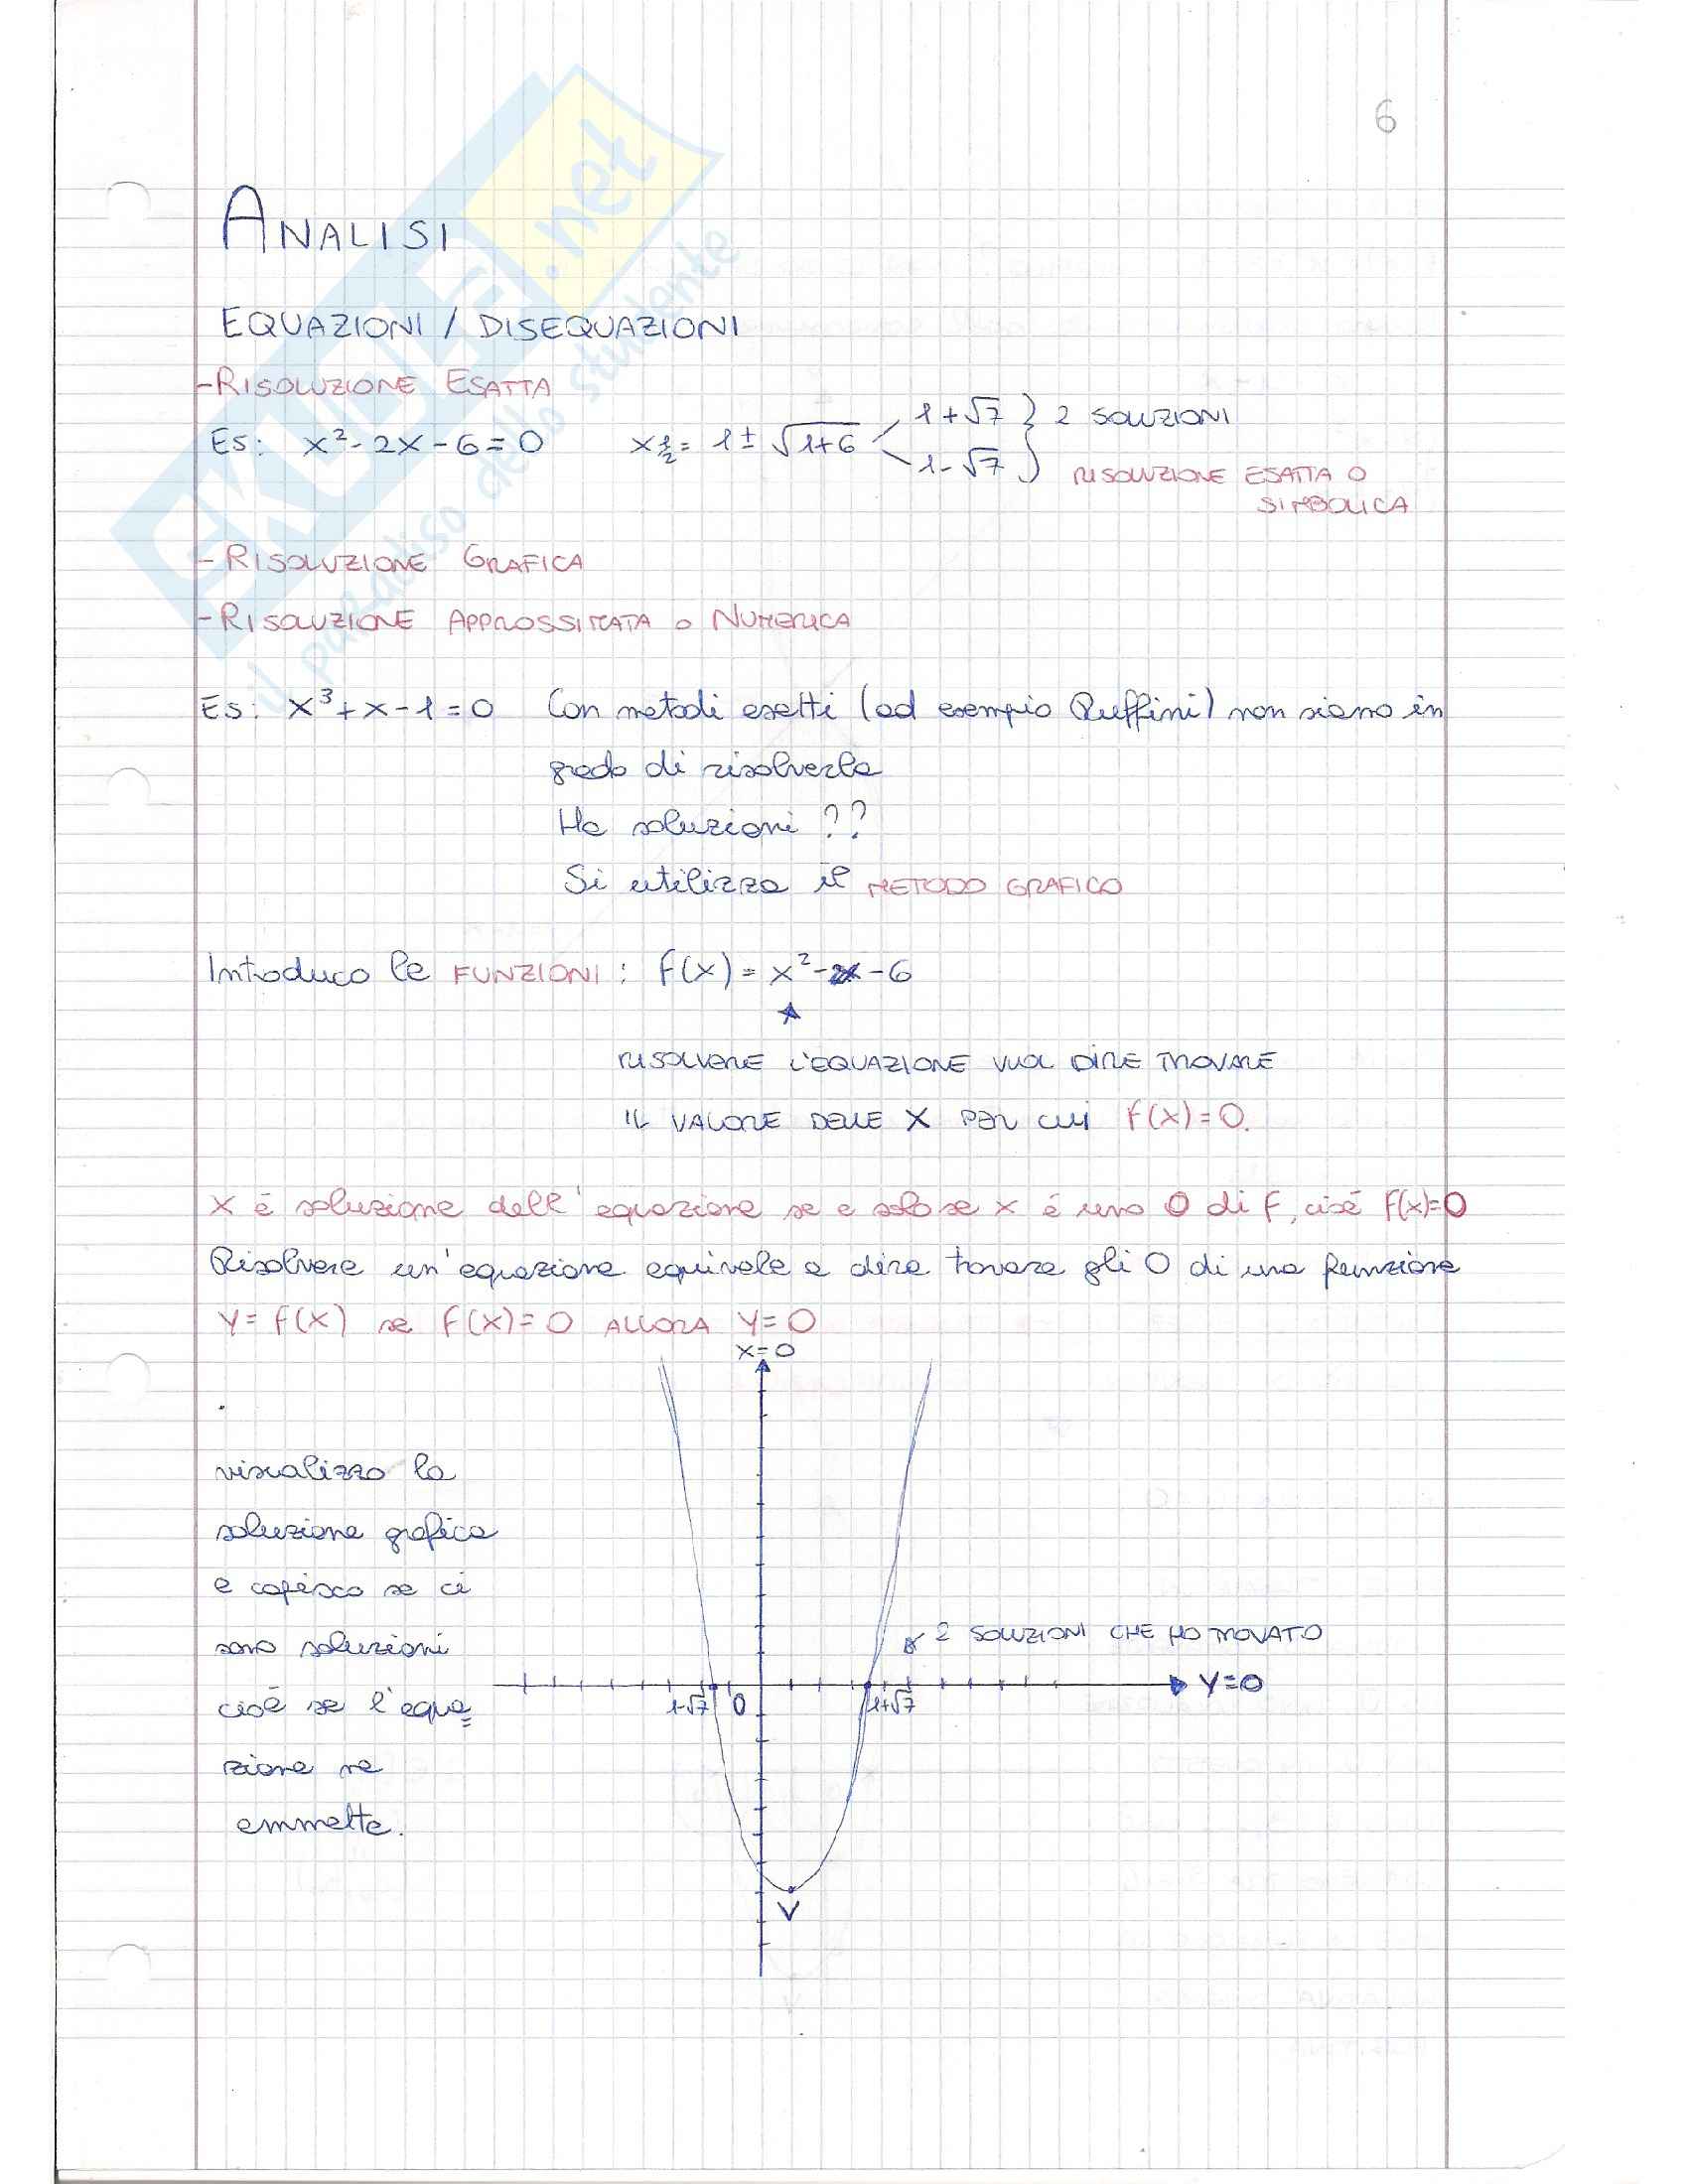 6
ANALISI
EQUAZIONI / DISEQUAZIONI
- RISOLUZIONE ESATTA
ES: x² - 2x - 6 = 0 x½ = 1 ± √1+6 1+√7 } 2 SOLUZIONI
1-√7 RISOLUZIONE ESATTA O
SIMBOLICA
- RISOLUZIONE GRAFICA
- RISOLUZIONE APPROSSIMATA O NUMERICA
ES: x³ + x - 1 = 0 Con metodi esatti (ad esempio Ruffini) non siamo in
grado di risolverla
Ha soluzioni ??
Si utilizza il METODO GRAFICO
Introduco le FUNZIONI: f(x) = x² - 2x - 6
RISOLVERE L'EQUAZIONE VUOL DIRE TROVARE
IL VALORE DELLE X PER CUI f(x) = 0.
X è soluzione dell'equazione se e solo se x é uno 0 di f, cioé f(x)=0
Risolvere un'equazione equivale a dire trovare gli 0 di una funzione
Y = f(x) se f(x) = 0 ALLORA Y = 0
X=0
visualizzo la
soluzione grafica
e capisco se ci
sono soluzioni
cioè se l'equa=
zione ne
ammette.
2 SOLUZIONI CHE HO TROVATO
Y=0
1-√7 0 1+√7
V
SKUOLA.net
il paradiso dello studente